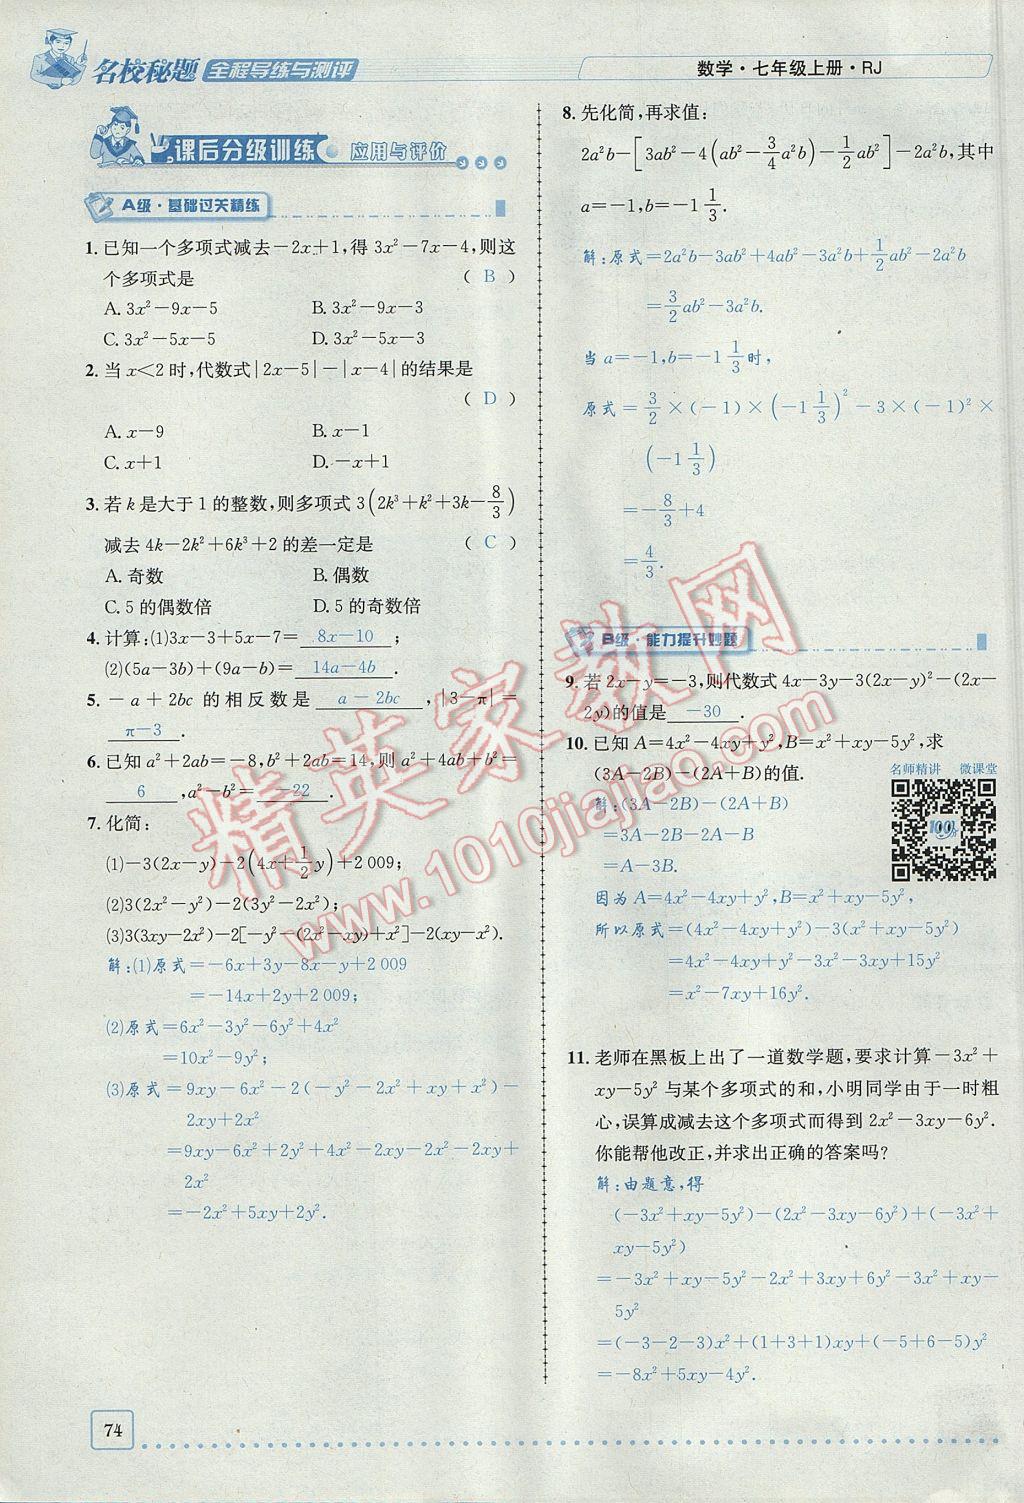 名校秘题 全程导练与测评
数学·七年级上册·RJ
课后分级训练 应用与评价
A级·基础过关精练
1. 已知一个多项式减去－2x＋1,得 3x²－7x－4,则这
个多项式是 ( B )
A. 3x²－9x－5 B. 3x²－9x－3
C. 3x²－5x－5 D. 3x²－5x－3
2. 当 x＜2 时,代数式|2x－5|－|x－4|的结果是
( D )
A. x－9 B. x－1
C. x＋1 D. －x＋1
3. 若 k 是大于 1 的整数,则多项式 3(2k³＋k²＋3k－8/3)
减去 4k－2k²＋6k³＋2 的差一定是 ( C )
A. 奇数 B. 偶数
C. 5 的偶数倍 D. 5 的奇数倍
4. 计算:(1)3x－3＋5x－7＝ 8x－10 ;
(2)(5a－3b)＋(9a－b)＝ 14a－4b .
5. －a＋2bc 的相反数是 a－2bc ,|3－π|＝
π－3 .
6. 已知 a²＋2ab＝－8,b²＋2ab＝14,则 a²＋4ab＋b²＝
6 ,a²－b²＝ －22 .
7. 化简:
(1)－3(2x－y)－2(4x＋1/2y)＋2 009;
(2)3(2x²－y²)－2(3y²－2x²);
(3)3(3xy－2x²)－2[－y²－(2x²－xy)＋x²]－2(xy－x²).
解:(1)原式＝－6x＋3y－8x－y＋2 009
＝－14x＋2y＋2 009;
(2)原式＝6x²－3y²－6y²＋4x²
＝10x²－9y²;
(3)原式＝9xy－6x²－2(－y²－2x²＋xy＋x²)－
2xy＋2x²
＝9xy－6x²＋2y²＋4x²－2xy－2x²－2xy＋
2x²
＝－2x²＋5xy＋2y².
74
8. 先化简,再求值:
2a²b－[3ab²－4(ab²－3/4a²b)－1/2ab²]－2a²b,其中
a＝－1,b＝－1 1/3.
解:原式＝2a²b－3ab²＋4ab²－3a²b＋1/2ab²－2a²b
＝3/2ab²－3a²b.
当 a＝－1,b＝－1 1/3时,
原式＝3/2×(－1)×(－1 1/3)²－3×(－1)²×
(－1 1/3)
＝－8/3＋4
＝4/3.
B级·能力提升妙题
9. 若 2x－y＝－3,则代数式 4x－3y－3(2x－y)²－(2x－
2y)的值是 －30 .
10. 已知 A＝4x²－4xy＋y²,B＝x²＋xy－5y²,求
(3A－2B)－(2A＋B)的值.
名师精讲 微课堂
解:(3A－2B)－(2A＋B)
＝3A－2B－2A－B
＝A－3B.
因为 A＝4x²－4xy＋y²,B＝x²＋xy－5y²,
所以原式＝(4x²－4xy＋y²)－3(x²＋xy－5y²)
＝4x²－4xy＋y²－3x²－3xy＋15y²
＝x²－7xy＋16y².
11. 老师在黑板上出了一道数学题,要求计算－3x²＋
xy－5y² 与某个多项式的和,小明同学由于一时粗
心,误算成减去这个多项式而得到 2x²－3xy－6y².
你能帮他改正,并求出正确的答案吗?
解:由题意,得
(－3x²＋xy－5y²)－(2x²－3xy－6y²)＋(－3x²＋
xy－5y²)
＝－3x²＋xy－5y²－2x²＋3xy＋6y²－3x²＋xy－
5y²
＝(－3－2－3)x²＋(1＋3＋1)xy＋(－5＋6－5)y²
＝－8x²＋5xy－4y².
精英家教网
www.1010jiajiao.com